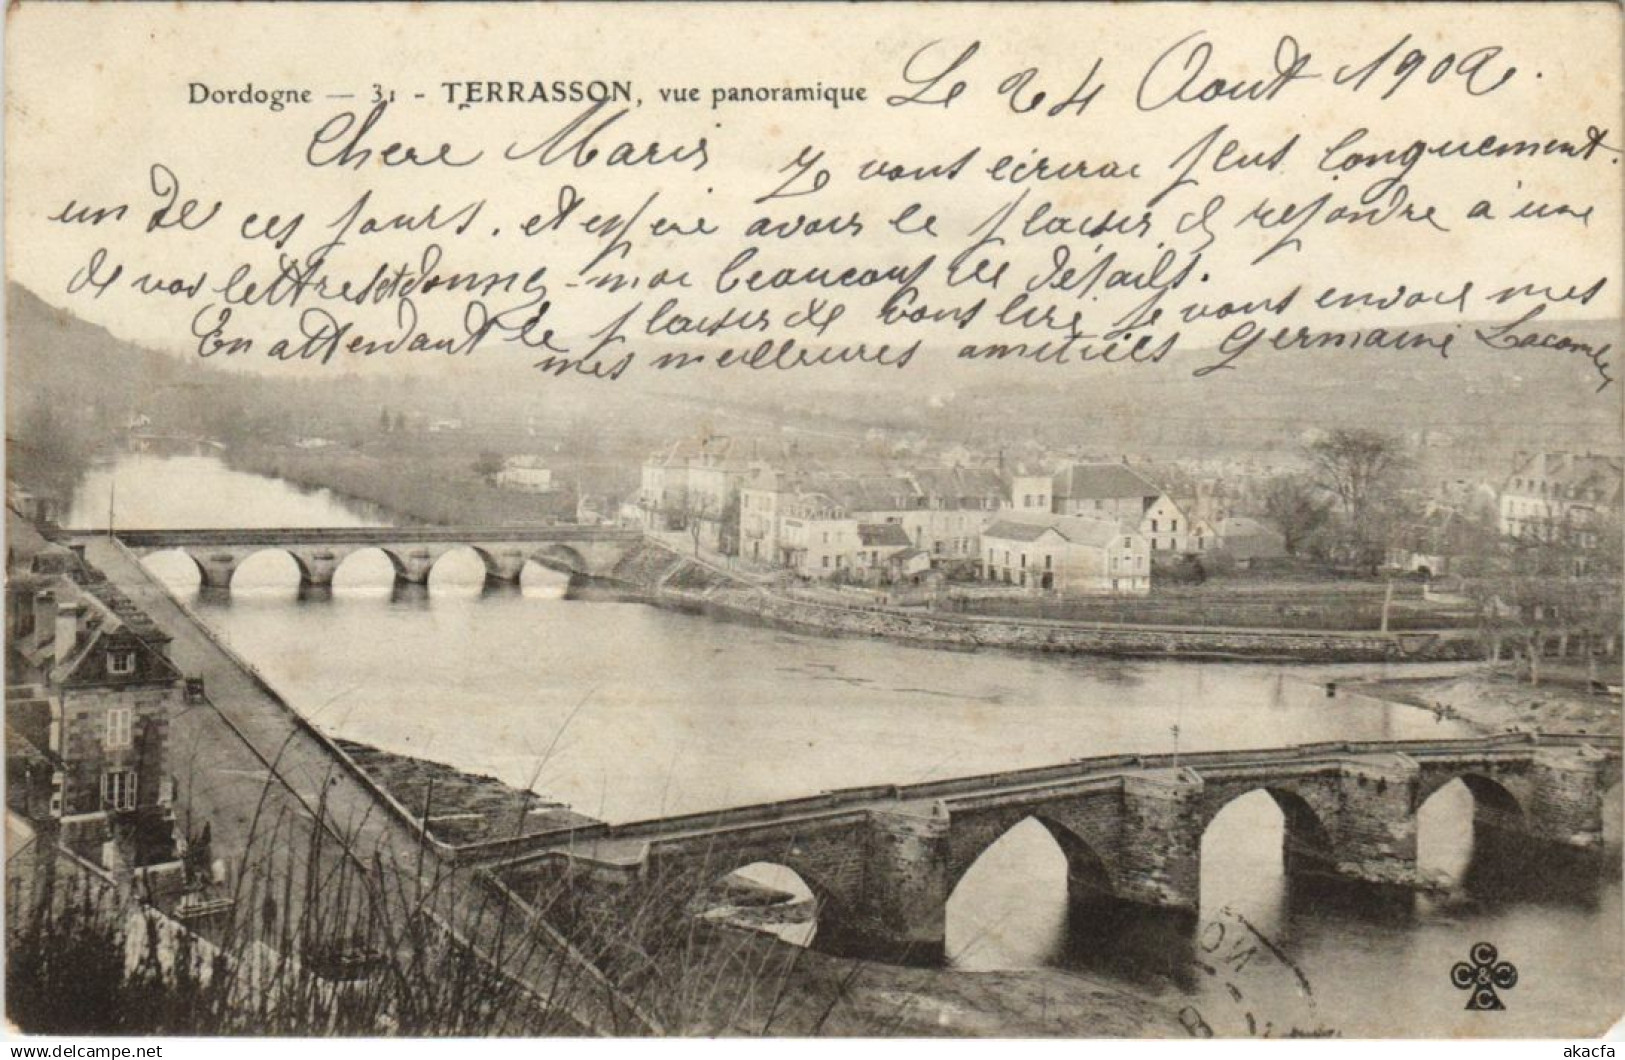 Dordogne — 31 - TERRASSON, vue panoramique
Le 24 Aout 1902.
Chere Maris
Je vous ecrirai plus longuement.
un de ces jours. et espere avoir le plaisir de repondre à une
de vos lettres et donne-moi beaucoup de détails.
En attendant le plaisir de vous lire je vous envoie mes
mes meilleures amitiés Germaine Lacombe
C C & C C
akacfa